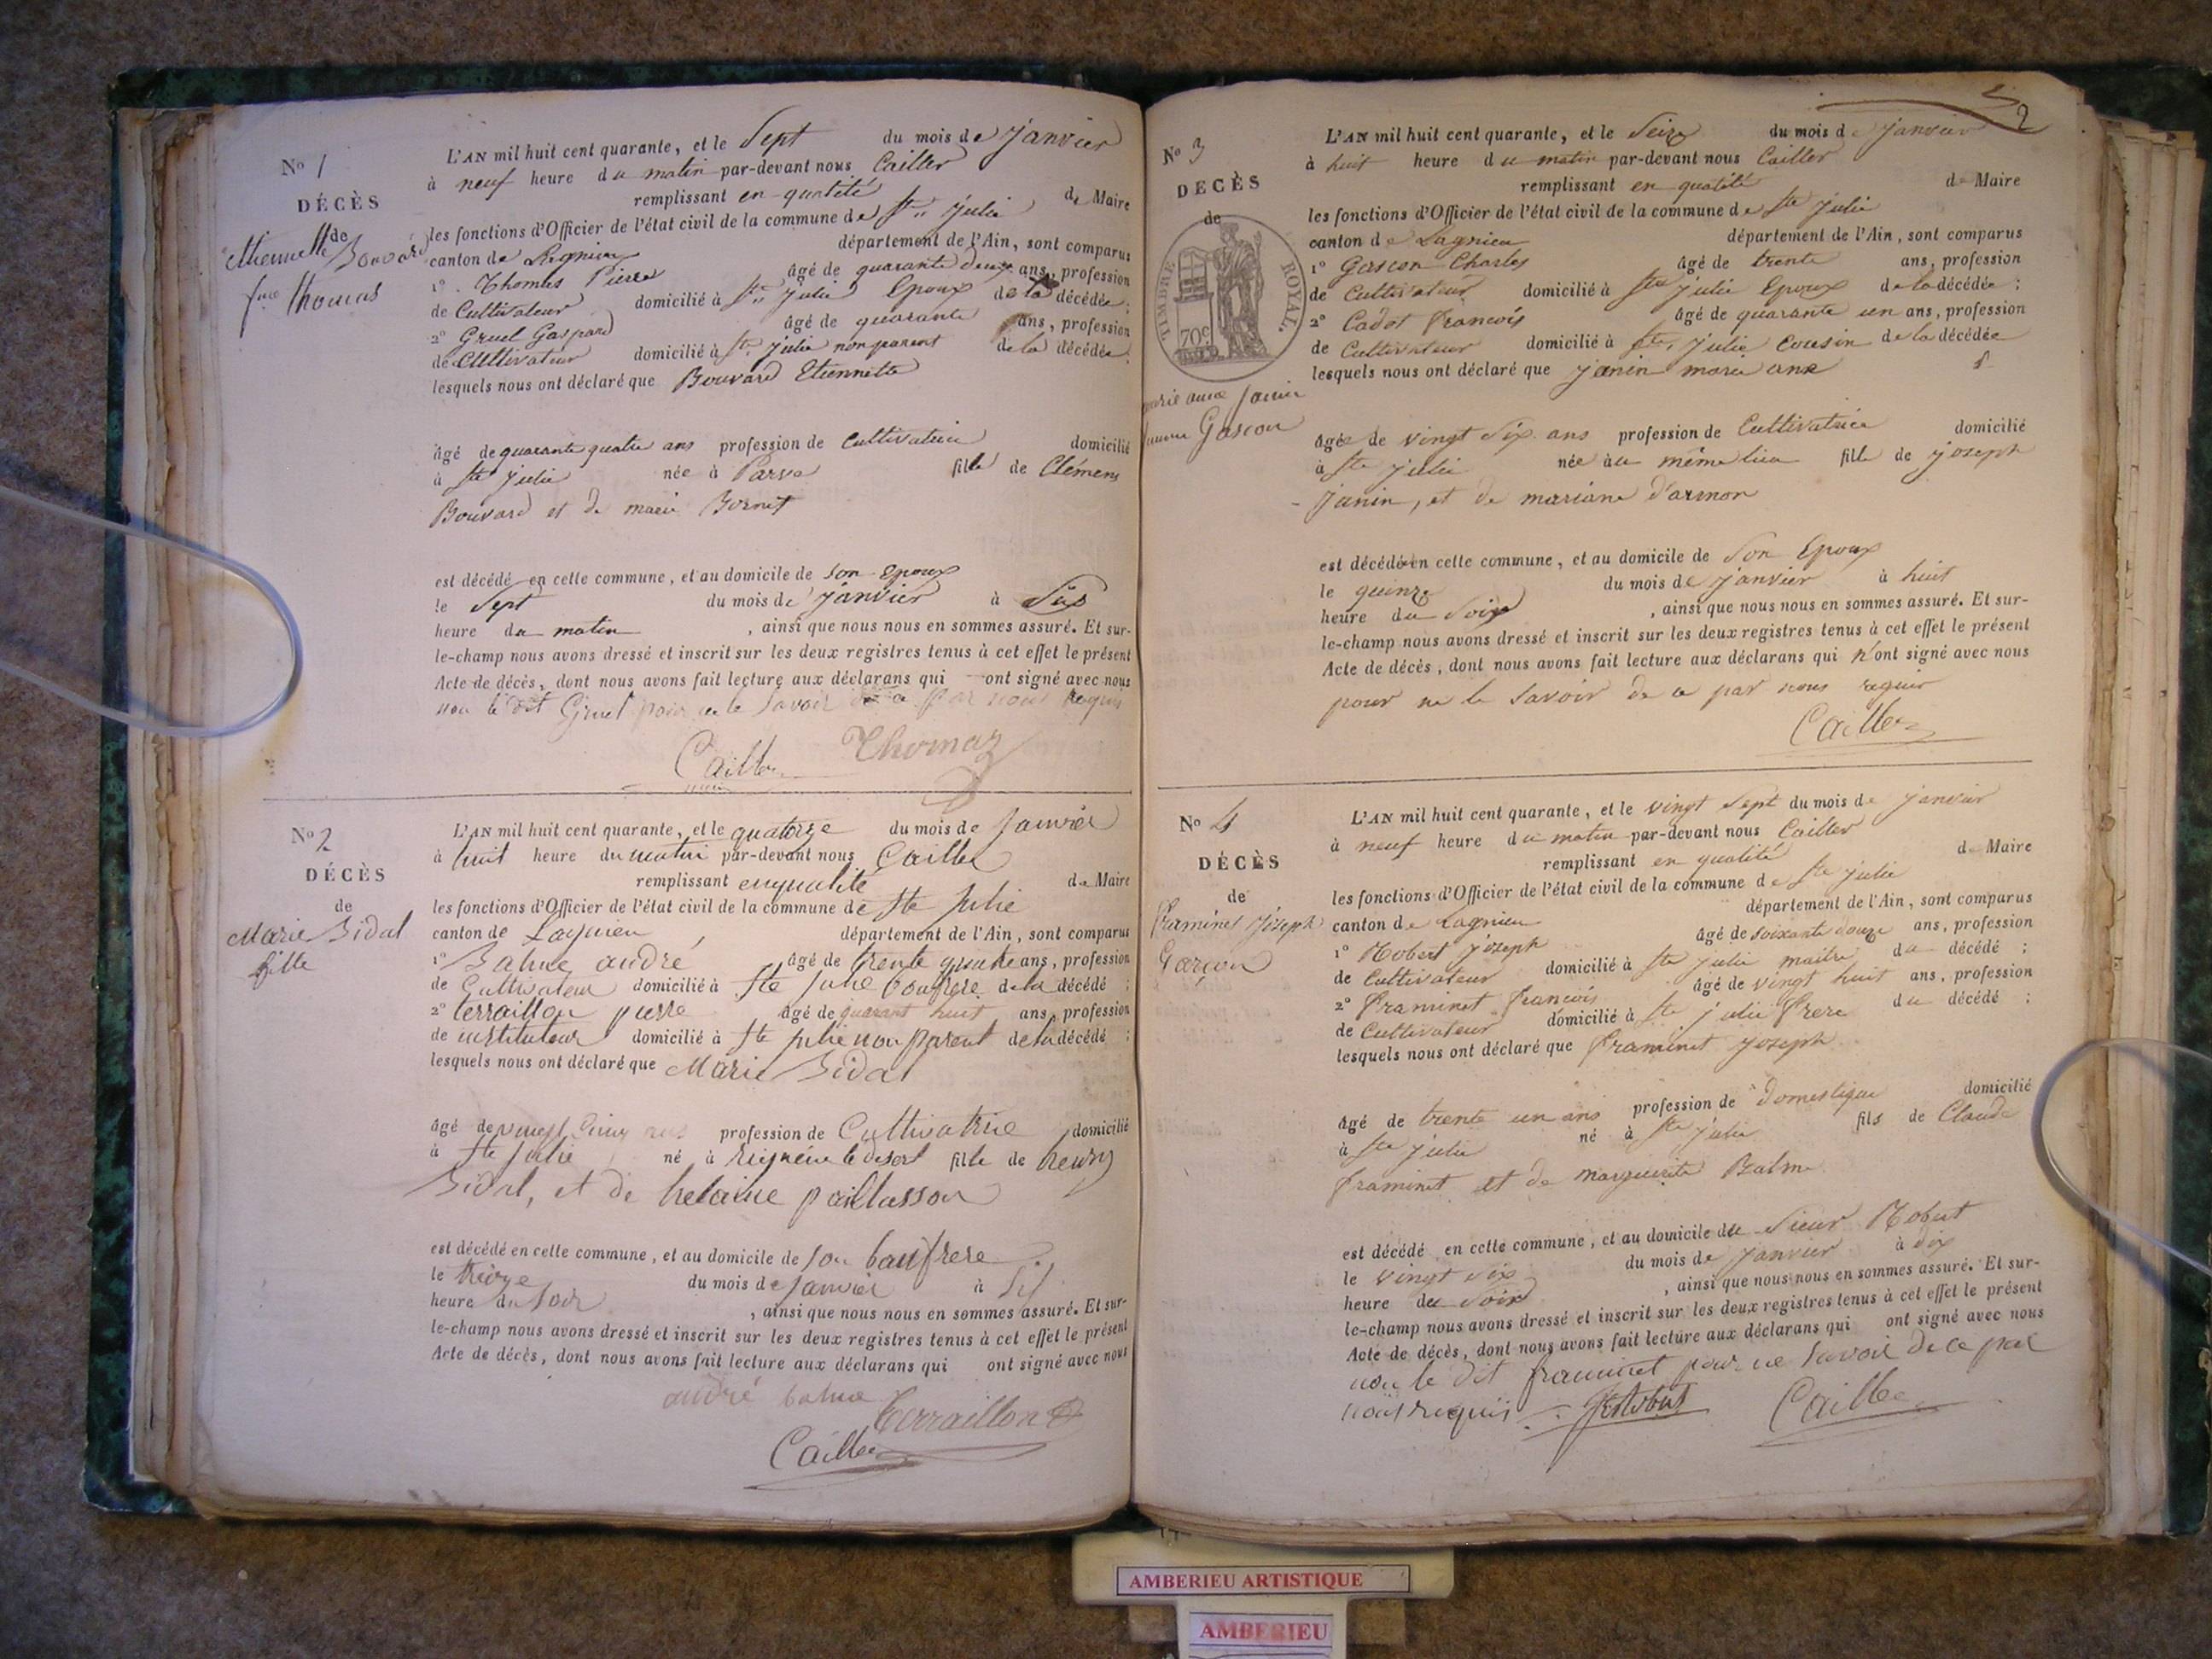 No 1
DÉCÈS
de
Etiennette Bouvard
fme Thomas
L'AN mil huit cent quarante, et le Sept du mois de janvier
à neuf heure du matin par-devant nous Cailler
remplissant en qualité de Maire
les fonctions d'Officier de l'état civil de la commune de Ste julie
canton de Lagnieu département de l'Ain, sont comparus
1° Thomas Pierre âgé de quarante deux ans, profession
de Cultivateur domicilié à Ste julie Epoux de la décédée;
2° Gruel Gaspard âgé de quarante ans, profession
de Cultivateur domicilié à Ste julie non parent de la décédée
lesquels nous ont déclaré que Bouvard Etiennette
âgé de quarante quatre ans profession de Cultivatrice domicilié
à Ste julie née à Parve fille de Clémens
Bouvard et de marie Bornet
est décédé en cette commune, et au domicile de son Epoux
le Sept du mois de janvier à Six
heure du matin, ainsi que nous nous en sommes assuré. Et sur-
le-champ nous avons dressé et inscrit sur les deux registres tenus à cet effet le présent
Acte de décès, dont nous avons fait lecture aux déclarans qui ont signé avec nous
non le dit Gruel pour ne le savoir de ce par nous requis
Cailler Thomas
No 2
DÉCÈS
de
Marie Bidal
fille
L'AN mil huit cent quarante, et le quatorze du mois de Janvier
à huit heure du matin par-devant nous Cailler
remplissant en qualité de Maire
les fonctions d'Officier de l'état civil de la commune de Ste Julie
canton de Lagnieu département de l'Ain, sont comparus
1° Balme andré âgé de trente quatre ans, profession
de Cultivateur domicilié à Ste Julie Boufrere de la décédé;
2° terraillon pierre âgé de quarant huit ans, profession
de instituteur domicilié à Ste julie non parent de la décédé;
lesquels nous ont déclaré que Marie Bidal
âgé de vingt cinq ans profession de Cultivatrice domicilié
à Ste Julie né à Rignieu le desert fille de henry
Bidal, et de helaine paillasson
est décédé en cette commune, et au domicile de son baufrere
le treize du mois de Janvier à
heure du soir, ainsi que nous nous en sommes assuré. Et sur-
le-champ nous avons dressé et inscrit sur les deux registres tenus à cet effet le présent
Acte de décès, dont nous avons fait lecture aux déclarans qui ont signé avec nous
andré balme
Terraillon
Cailler
2
No 3
DECÈS
de
TIMBRE ROYAL.
70c
marie anne Janin
femme Gascon
L'AN mil huit cent quarante, et le Seize du mois de janvier
à huit heure du matin par-devant nous Cailler
remplissant en qualité de Maire
les fonctions d'Officier de l'état civil de la commune de Ste julie
canton de Lagnieu département de l'Ain, sont comparus
1° Gascon Charles âgé de trente ans, profession
de Cultivateur domicilié à Ste julie Epoux de la décédée;
2° Cadot francois âgé de quarante un ans, profession
de Cultivateur domicilié à Ste julie Cousin de la décédée
lesquels nous ont déclaré que janin marie ane
âgée de vingt Six ans profession de Cultivatrice domicilié
à Ste julie née au même lieu fille de joseph
Janin, et de mariane d'armon
est décédée en cette commune, et au domicile de Son Epoux
le quinze du mois de janvier à huit
heure du Soir, ainsi que nous nous en sommes assuré. Et sur-
le-champ nous avons dressé et inscrit sur les deux registres tenus à cet effet le présent
Acte de décès, dont nous avons fait lecture aux déclarans qui n'ont signé avec nous
pour ne le savoir de ce par nous requis
Cailler
No 4
DÉCÈS
de
framinet Joseph
Garçon
L'AN mil huit cent quarante, et le vingt Sept du mois de janvier
à neuf heure du matin par-devant nous Cailler
remplissant en qualité de Maire
les fonctions d'Officier de l'état civil de la commune de Ste julie
canton de Lagnieu département de l'Ain, sont comparus
1° Robert joseph âgé de soixante douze ans, profession
de Cultivateur domicilié à Ste julie maitre du décédé;
2° framinet francois âgé de vingt huit ans, profession
de Cultivateur domicilié à Ste julie frere du décédé;
lesquels nous ont déclaré que framinet joseph
âgé de trente un ans profession de domestique domicilié
à Ste julie né à Ste julie fils de Claude
framinet et de marguerite Balme
est décédé en cette commune, et au domicile du Sieur Robert
le vingt Six du mois de janvier à dix
heure du Soir, ainsi que nous nous en sommes assuré. Et sur-
le-champ nous avons dressé et inscrit sur les deux registres tenus à cet effet le présent
Acte de décès, dont nous avons fait lecture aux déclarans qui ont signé avec nous
non le dit framinet pour ne savoir de ce par
nous requis Cailler
AMBERIEU ARTISTIQUE
AMBERIEU